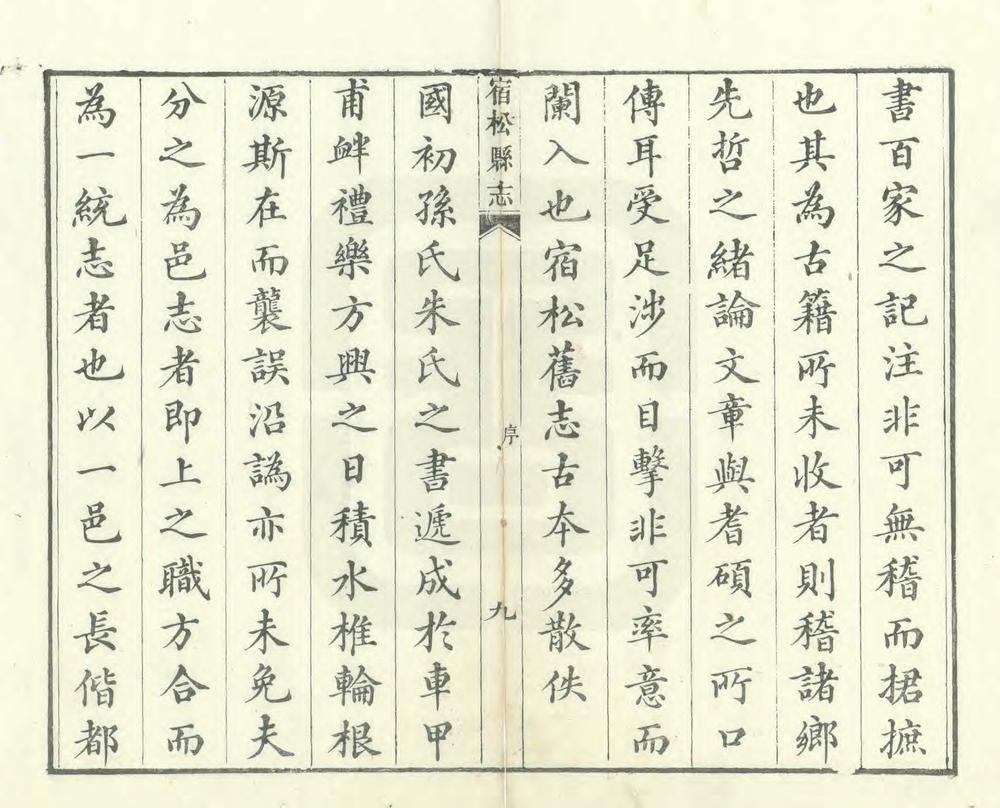 書百家之記注非可無稽而捃摭
也其為古籍所未收者則稽諸鄉
先哲之緒論文章與耆碩之所口
傳耳受足涉而目擊非可率意而
闌入也宿松舊志古本多散佚
宿松縣志
序
九
國初孫氏朱氏之書遞成於車甲
甫衅禮樂方興之日積水椎輪根
源斯在而襲誤沿譌亦所未免夫
分之為邑志者即上之職方合而
為一統志者也以一邑之長偕都